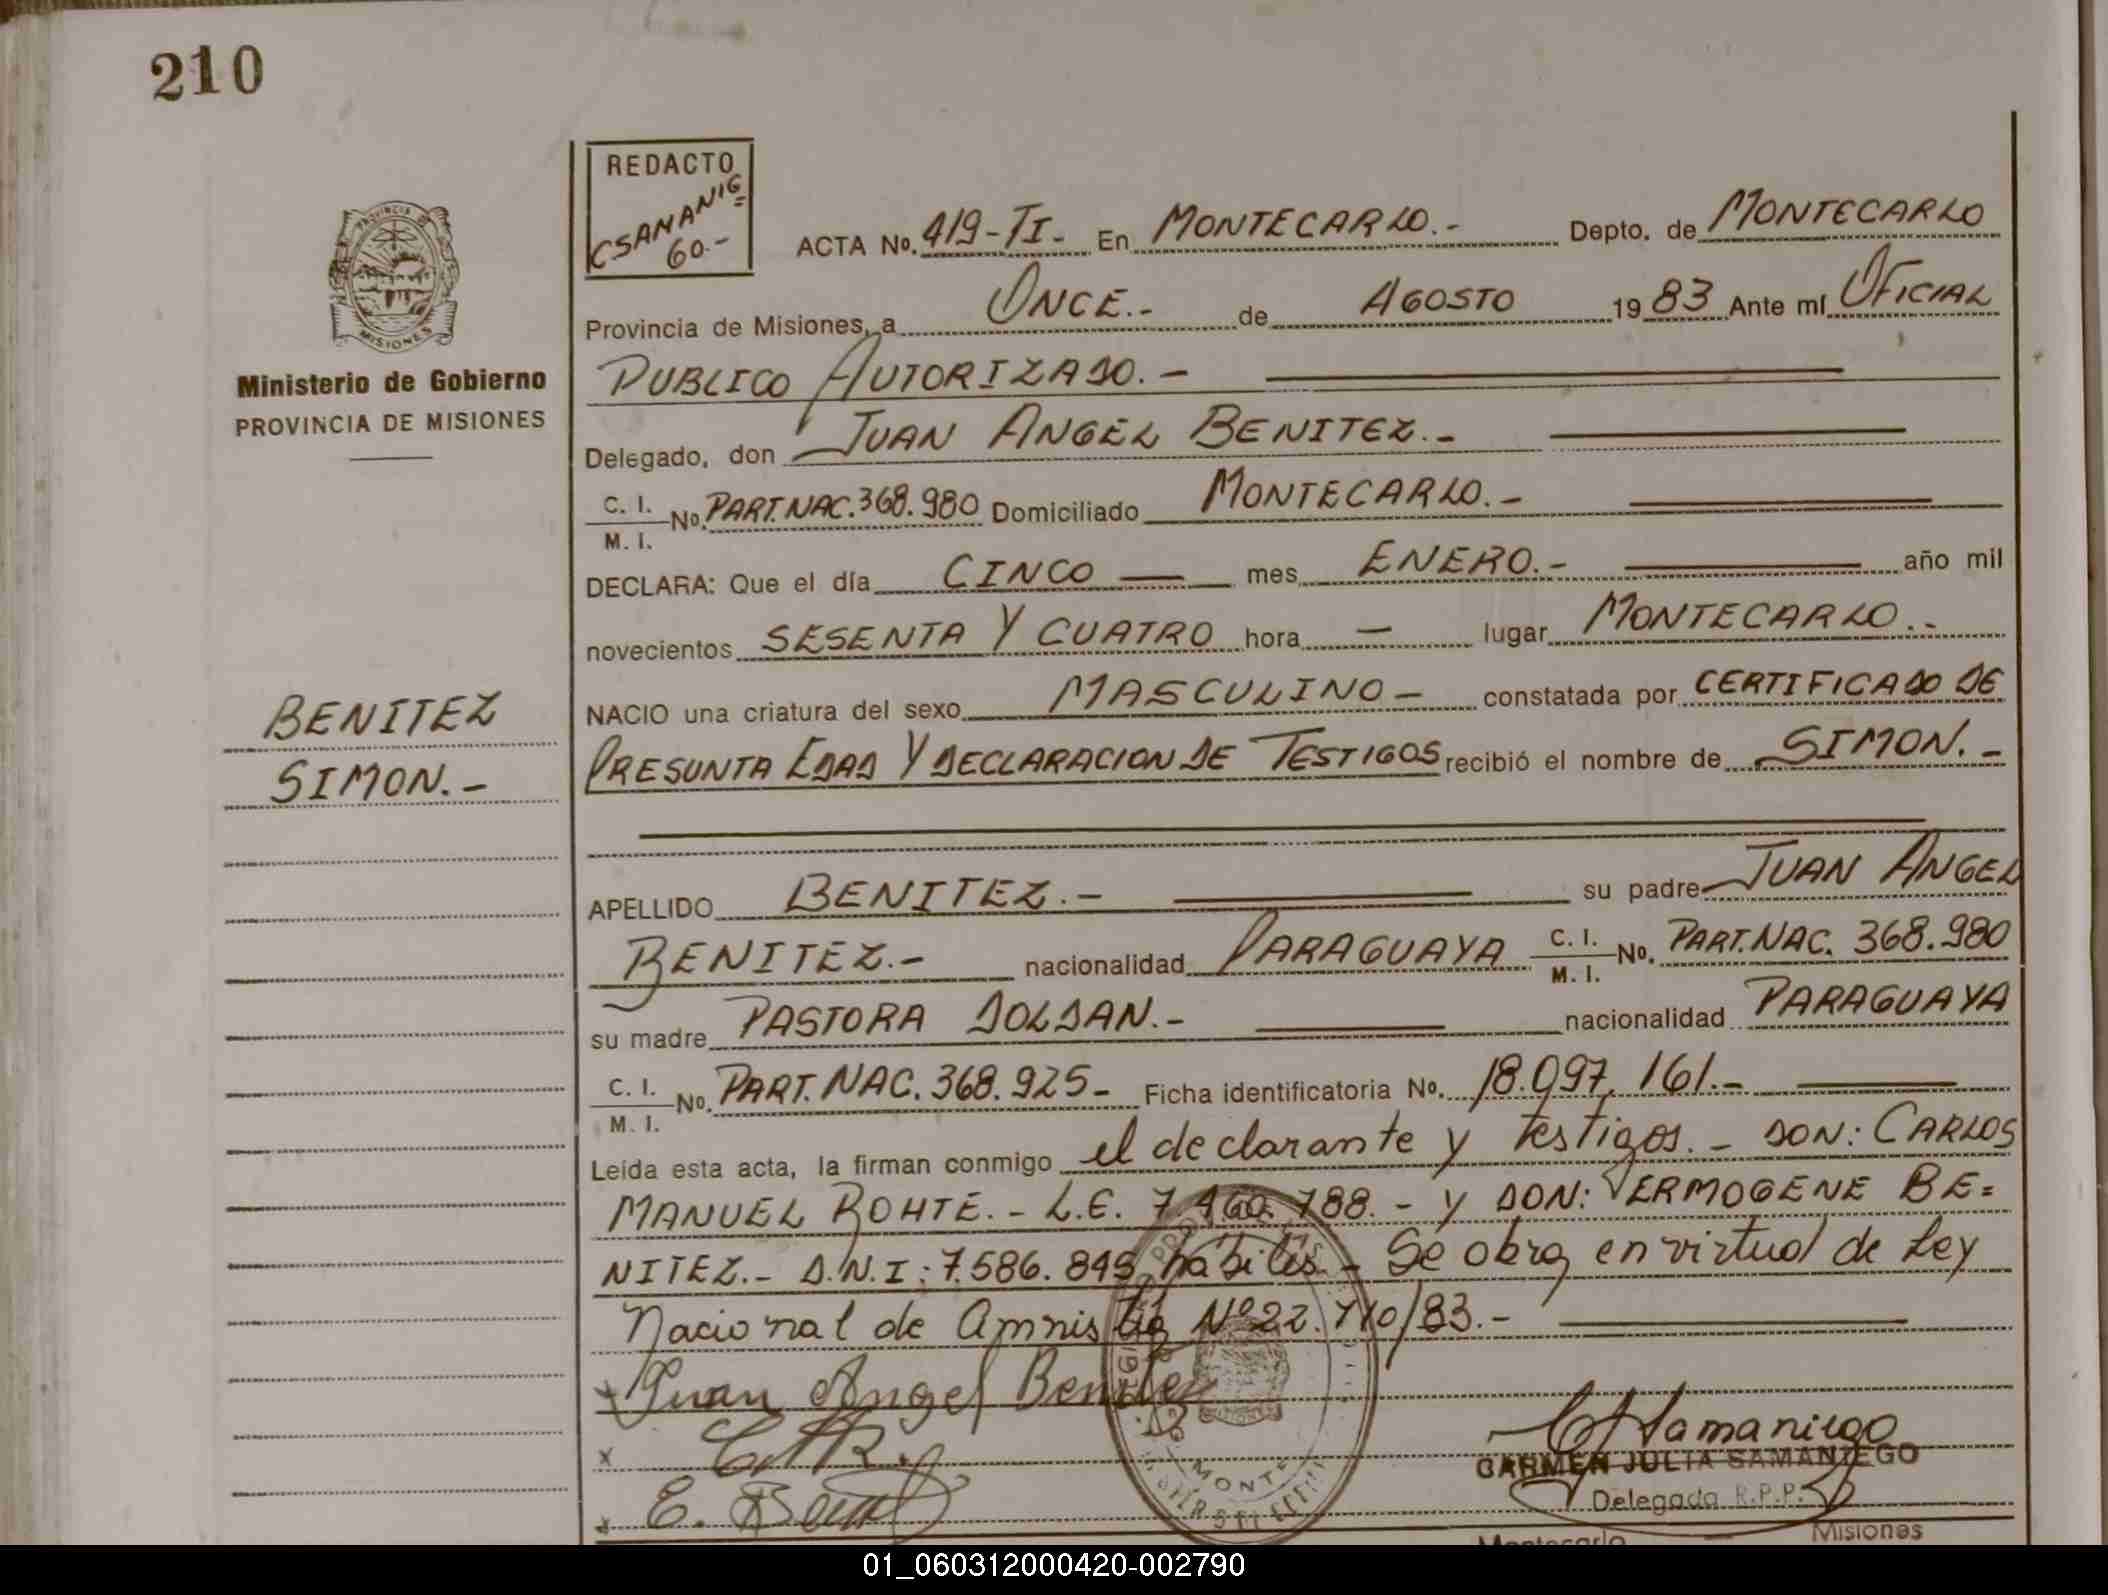 210
REDACTO
CSAMANIG=
60.-
ACTA No. 419-TI- En MONTECARLO.- Depto. de MONTECARLO
MISIONES
Provincia de Misiones, a ONCE.- de AGOSTO 19 83 Ante mí OFICIAL
Ministerio de Gobierno
PUBLICO AUTORIZADO.-
PROVINCIA DE MISIONES
Delegado, don JUAN ANGEL BENITEZ.-
C. I.
M. I.
No. PART.NAC.368.980 Domiciliado MONTECARLO.-
DECLARA: Que el día CINCO — mes ENERO.- año mil
novecientos SESENTA Y CUATRO hora — lugar MONTECARLO.-
BENITEZ
NACIO una criatura del sexo MASCULINO - constatada por CERTIFICADO DE
SIMON.-
PRESUNTA EDAD Y DECLARACION DE TESTIGOS recibió el nombre de SIMON.-
APELLIDO BENITEZ.- su padre JUAN ANGEL
BENITEZ.- nacionalidad PARAGUAYA C. I. M. I. No. PART.NAC. 368.980
su madre PASTORA DOLDAN.- nacionalidad PARAGUAYA
C. I.
M. I.
No. PART.NAC.368.925- Ficha identificatoria No. 18.097.161.-
Leída esta acta, la firman conmigo el declarante y testigos.- DON: CARLOS
MANUEL ROHTE.- L.E. 7.460.788.- y DON: ERMOGENE BE=
NITEZ.- D.N.I: 7.586.845 hábiles.- Se obra en virtud de Ley
Nacional de Amnistía Nº 22.710/83.-
Juan Angel Benitez
CARMEN JULIA SAMANIEGO
E. Benitez
Delegada R.P.P.
Montecarlo — Misiones
01_060312000420-002790